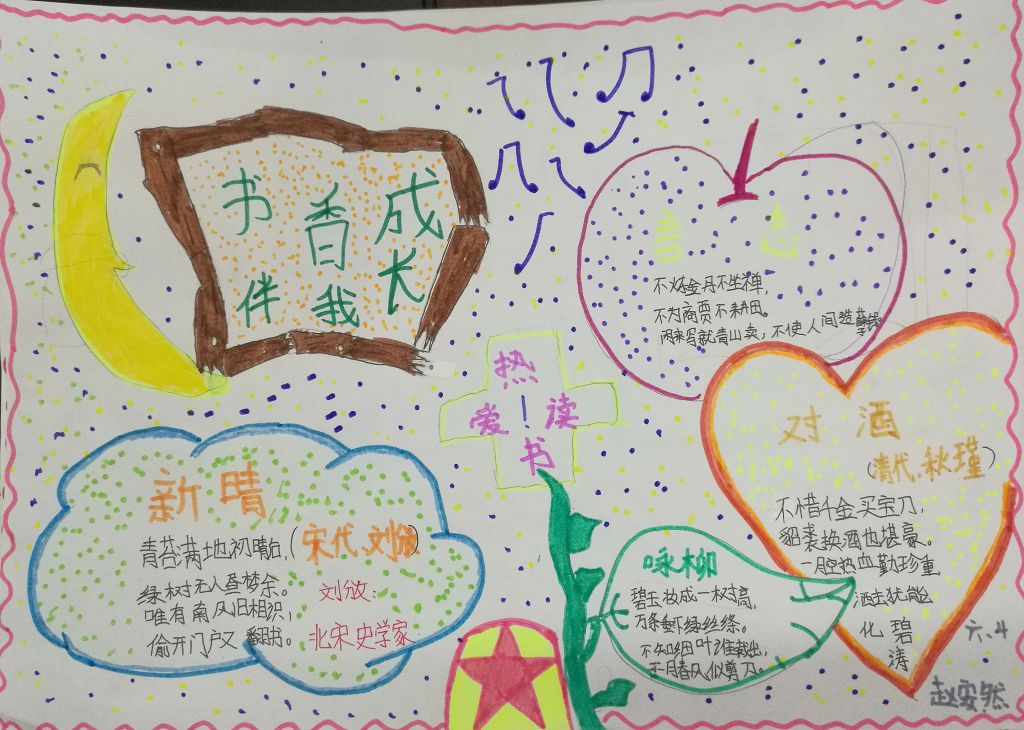 书香成长
伴我
言志
不炼金丹不坐禅，
不为商贾不耕田。
闲来写就青山卖，不使人间造孽钱。
热
爱！读
书
对酒
(清代.秋瑾)
不惜千金买宝刀，
貂裘换酒也堪豪。
一腔热血勤珍重，
洒去犹能
化碧
涛
新晴
青苔满地初晴后，(宋代.刘攽)
绿树无人昼梦余。
唯有南风旧相识，
偷开门户又翻书。
刘攽：
北宋史学家
咏柳
碧玉妆成一树高，
万条垂下绿丝绦。
不知细叶谁裁出，
二月春风似剪刀。
六.4
赵安然